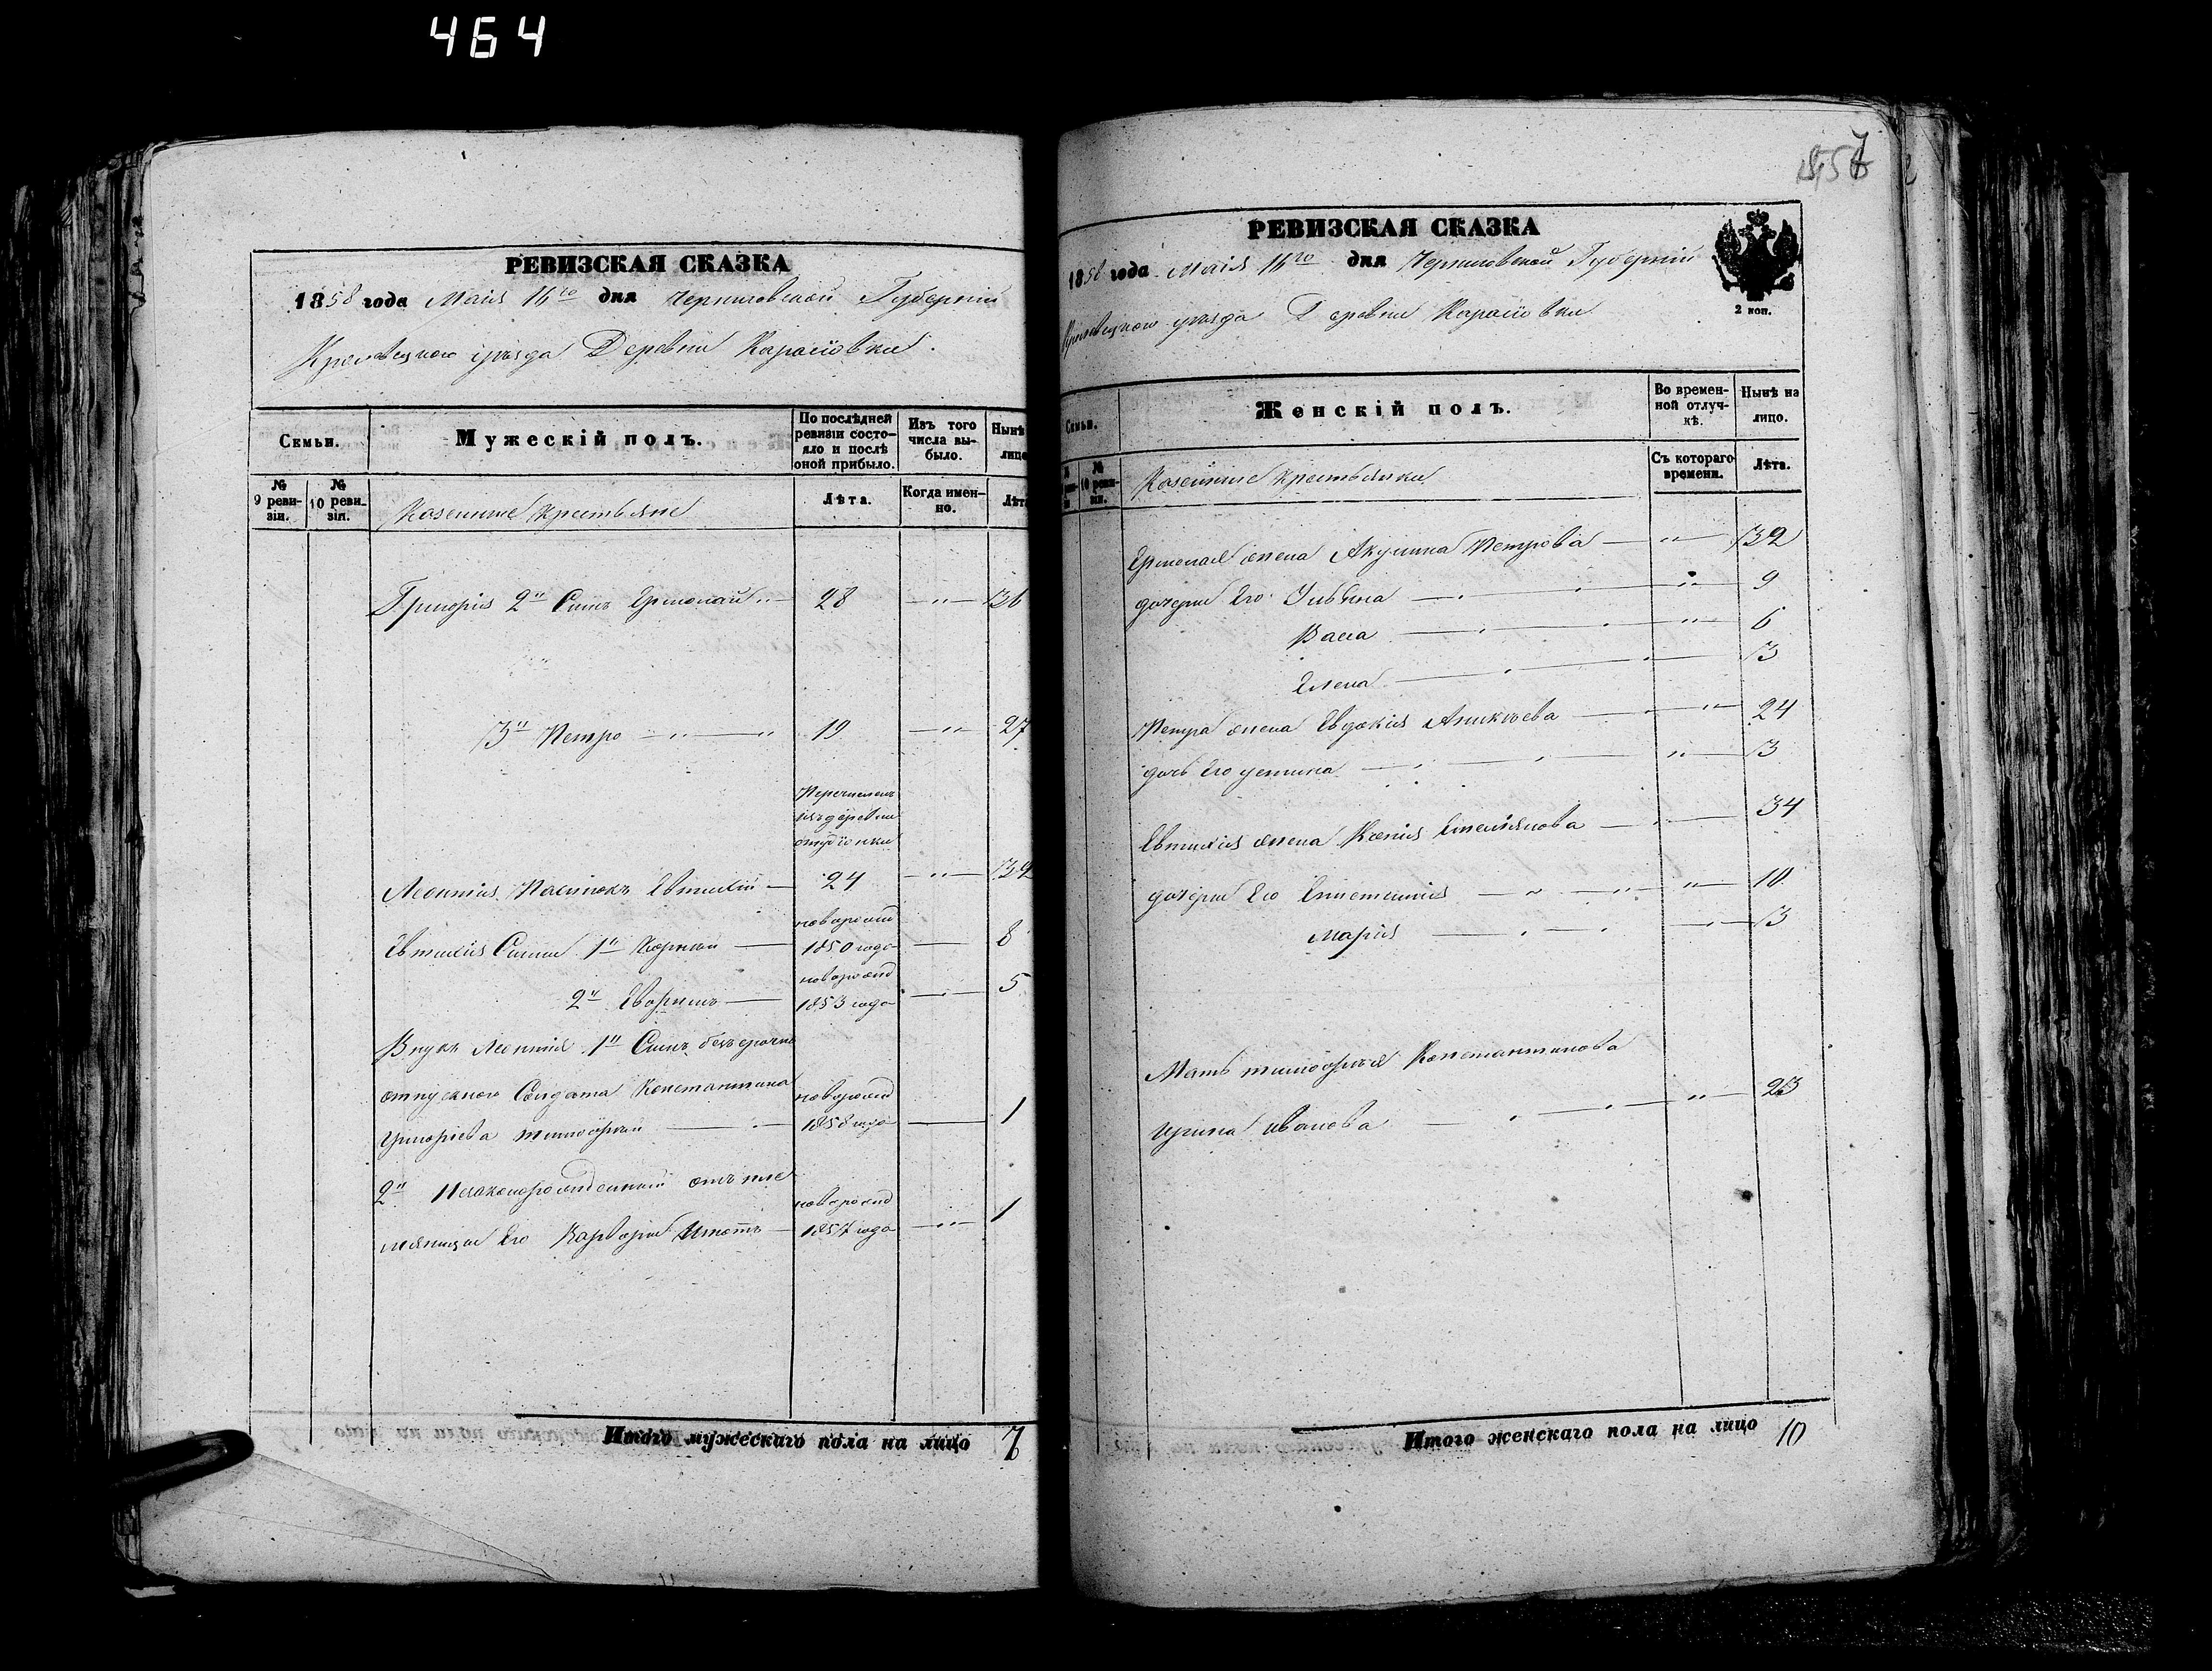 464
РЕВИЗСКАЯ СКАЗКА
1858 года Маія 16го дня Черниговской Губерніи
Кролевецкого уѣзда Деревни Карасіовки
Семьи.
Мужескій полъ.
По послѣдней ревизіи состо-яло и послѣ оной прибыло.
Изъ того числа вы-было.
Нынѣ
лицо
№ 9 реви-зіи.
№ 10 реви-зіи.
Казенные крестьяне
Лѣта.
Когда имен-но.
Лѣта
Григорія 2й Сынъ Ермолай 28 36
3й Петро 19 27
Перечисленъ
изъ деревни
Леонтія Евтихій 24 32
новорожд
Евтихія Сыны 1й 1850 года 8
новорожд
2й 1853 года 5
Внукъ Леонтія 1й Сынъ безсрочно
отпускного Солдата Константина новорожд
Григоріева Тимофей 1858 года 1
2й Незаконорожденный отъ пле новорожд
мяницы Его Варвары Игнатъ 1857 года 1
Итого мужескаго пола на лицо 7
7
РЕВИЗСКАЯ СКАЗКА
1858 года Маія 16го дня Черниговской Губерніи
2 коп.
Кролевецкого уѣзда Деревни Карасіовки
Семьи.
Женскій полъ.
Во времен-ной отлуч-кѣ.
Нынѣ на лицо.
№ 10 реви-зіи.
Казенные крестьянки
Съ котораго времени.
Лѣта.
Ермолая жена Акулина Петрова 32
дочери Его Ульяна 9
Васса 6
Елена 3
Петра жена Евдокія Аникѣева 24
дочь Его Устина 3
Евтихія жена Ксенія Емельянова 34
дочери Его 10
Марія 3
Мать Тимофея Константинова
Ирина Иванова 23
Итого женскаго пола на лицо 10